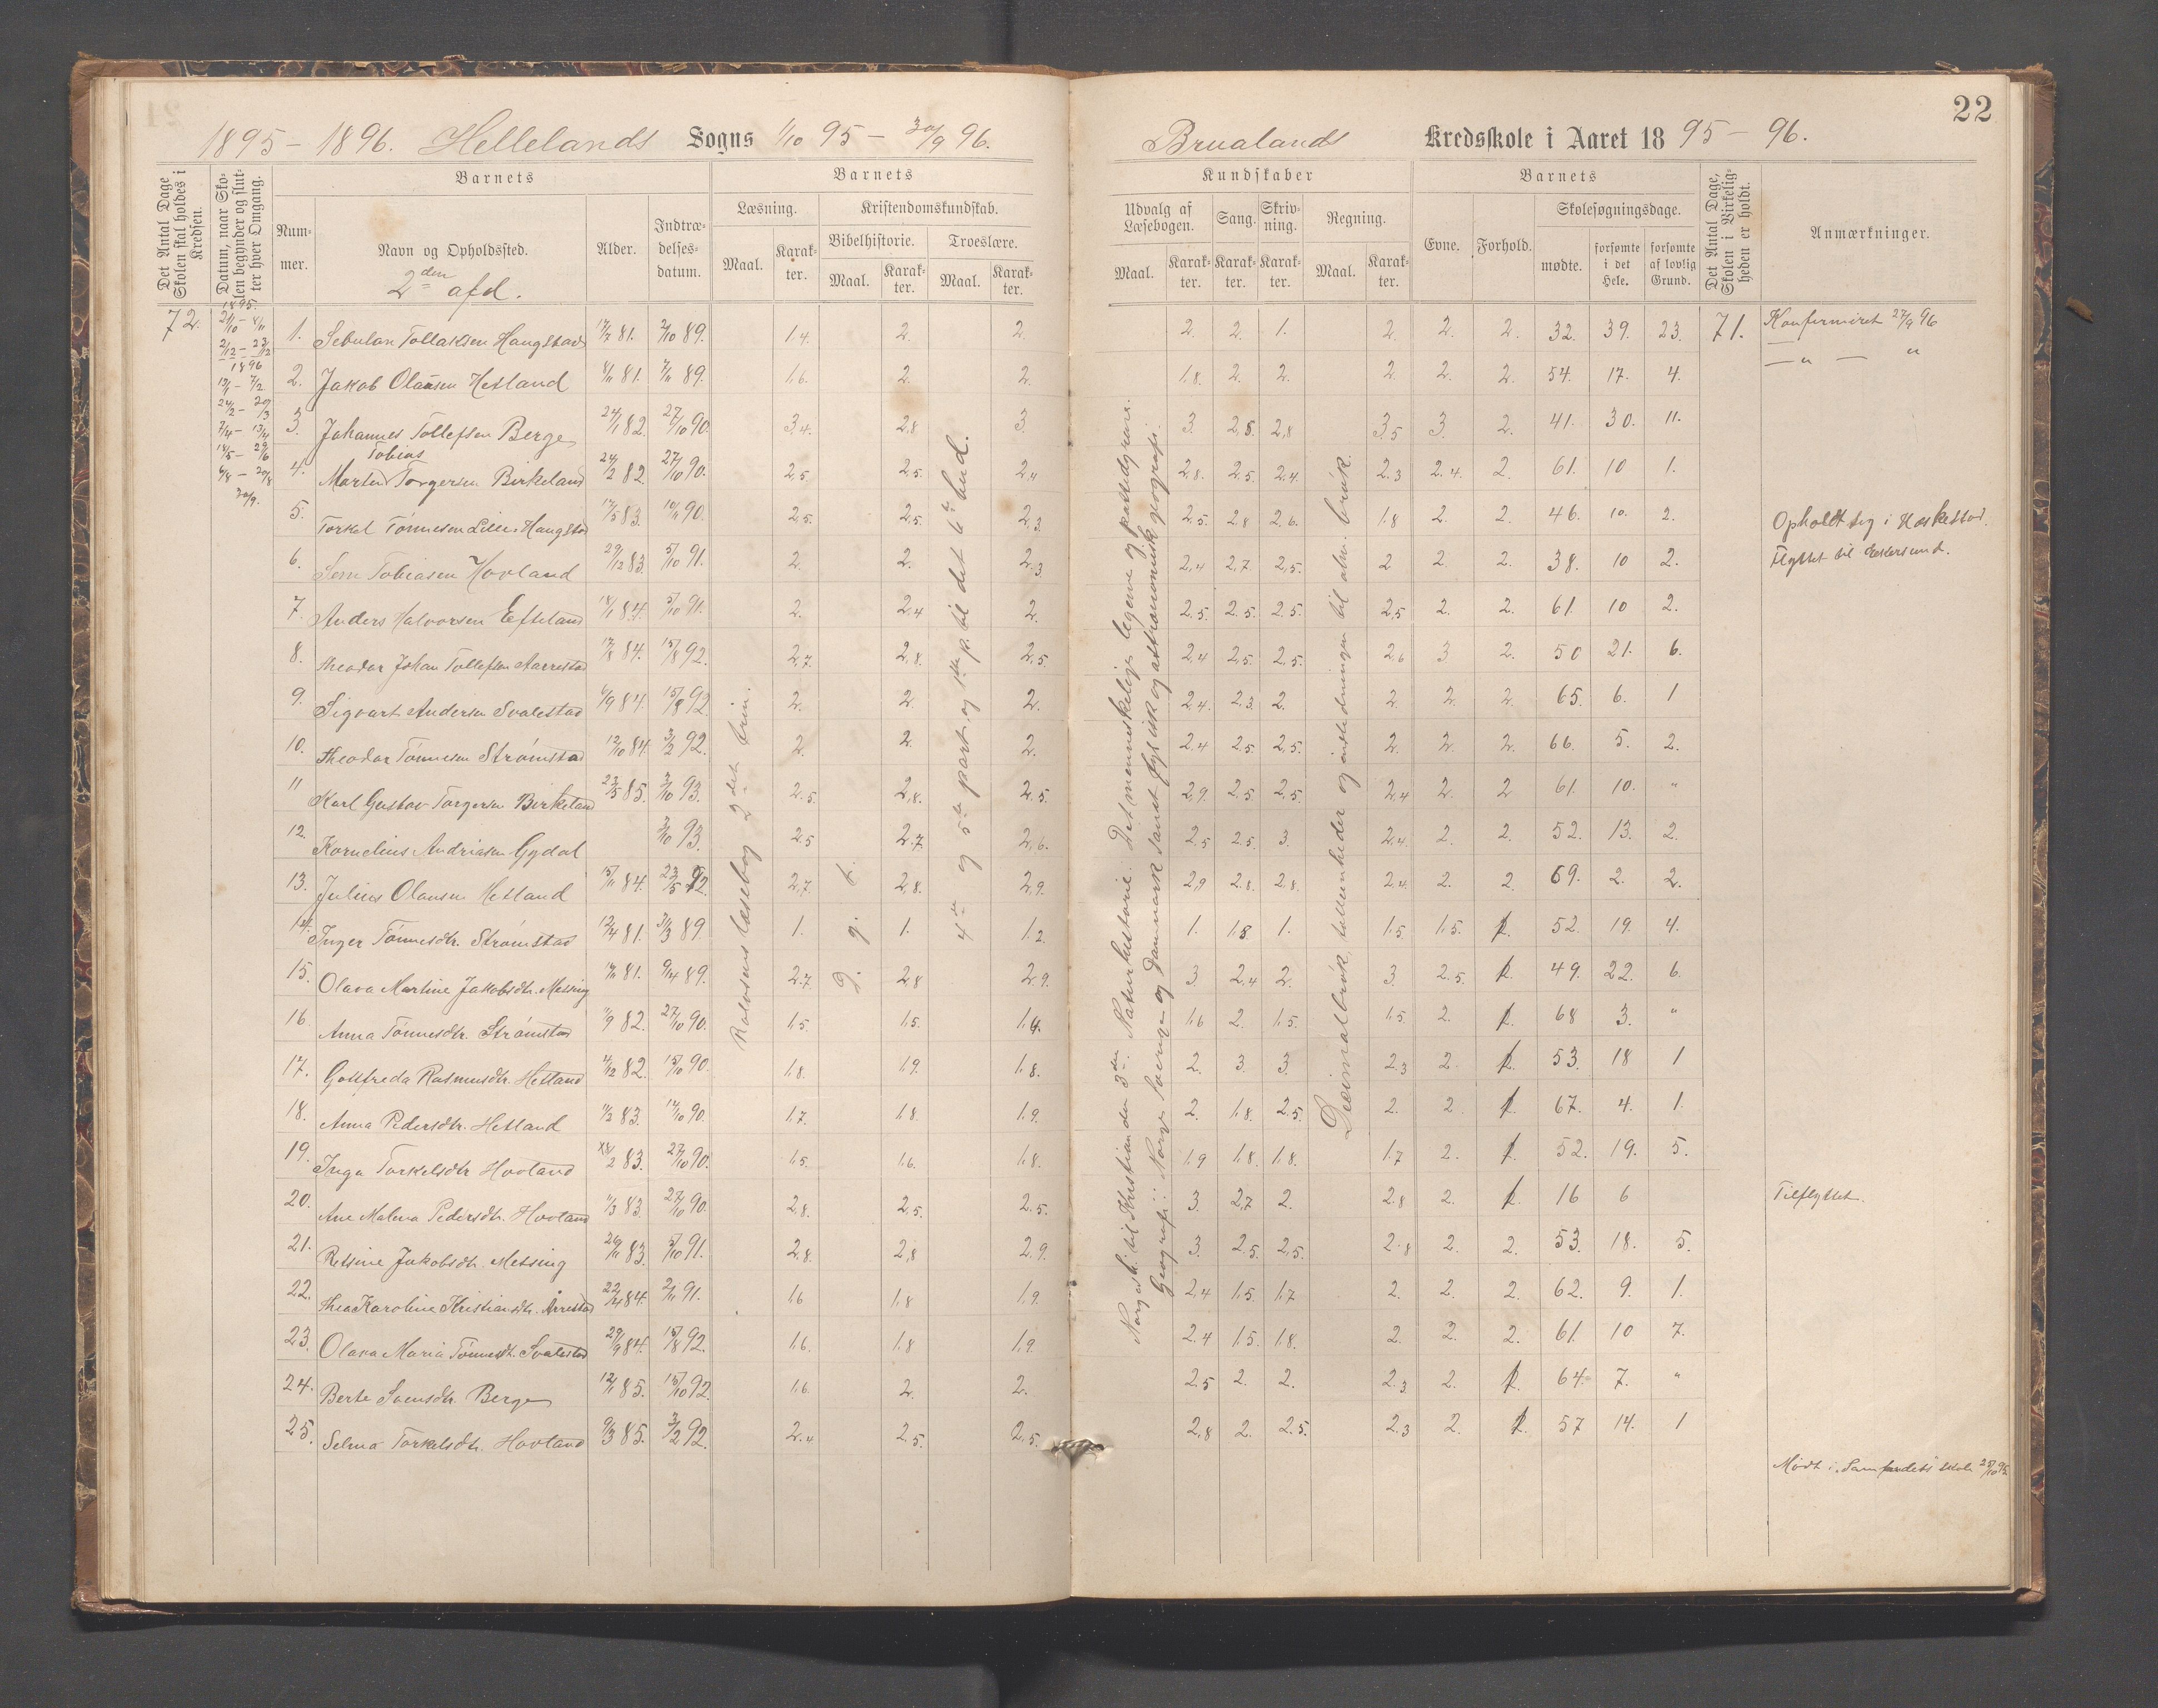 22
1895 – 1896. Hellelands Sogns 1/10 95 – 30/9 96.
Brualands Kredsskole i Aaret 1895 – 96.
Det Antal Dage Skolen skal holdes i Kredsen.
Datum, naar Skolen begynder og slutter hver Omgang.
Barnets
Nummer.
Navn og Opholdssted.
2den afd.
Alder.
Indtrædelsesdatum.
Barnets
Læsning.
Maal.
Karakter.
Kristendomskundskab.
Bibelhistorie.
Maal.
Karakter.
Troeslære.
Maal.
Karakter.
Kundskaber
Udvalg af Læsebogen.
Maal.
Karakter.
Sang.
Karakter.
Skrivning.
Karakter.
Regning.
Maal.
Karakter.
Barnets
Evne.
Forhold.
Skolesøgningsdage.
mødte.
forsømte i det Hele.
forsømte af lovlig Grund.
Det Antal Dage, Skolen i Virkeligheden er holdt.
Anmærkninger.
72.
1895.
1896
30/9.
Rolvsens læsebog 2det trin.
4de og 5te part. og 1ste p. til det 6te bud.
Norgesh. til Kristian den 3die. Naturhistorie: Det menneskelige legeme og pattedyrene.
Geografi: Norge Sverige og Danmark samt fysisk og astronomisk geografi.
Decimalbrøk, tolleenheder og indledningen til alm. brøk.
1. Sebulan Tollaksen Haugstad 17/7 81. 2/10 89. 1.4. 2. 2. 2. 2. 1. 2. 2. 2. 32. 39. 23. 71. Konfirmeret 27/9 96
2. Jakob Olausen Hetland 8/11 81. 7/11 89. 1.6. 2. 2. 1.8. 2. 2. 2. 2. 2. 54. 17. 4. — " — "
3. Johannes Tollefsen Berge 24/1 82. 27/10 90. 3.4. 2.8 3. 3. 2.8. 2.8 3.5 3. 2. 41. 30. 11.
Tobias
4. Morten Torgersen Birkeland 24/2 82. 27/10 90. 2.5 2.5. 2.4 2.8. 2.5. 2.4. 2.3 2.4. 2. 61. 10 1.
5. Torkel Tønnesen Lille-Haugstad 17/5 83. 10/11 90. 2.5. 2.5. 2.3. 2.5. 2.8 2.6. 1.8 2. 2. 46. 10. 2. Opholdt sig i Heskestad.
6. Sem Tobiasen Hovland 29/12 83. 5/10 91. 2. 2. 2.3. 2.4 2.7. 2.5. 2 2. 2. 38. 10 2. Flyttet til Ekersund.
7. Anders Halvorsen Efteland 18/1 84. 5/10 91. 2. 2.4 2. 2.5. 2.5. 2.5. 2.5 2. 2. 61. 10 2.
8. Theodor Johan Tollefsen Aarrestad 17/8 84. 15/8 92. 2.7. 2.8. 2.5. 2.4 2.5. 2.5. 2.6 3 2. 50 21. 6.
9. Sigvart Andersen Svalestad 6/9 84. 15/8 92. 2. 2. 2. 2.4. 2.3. 2. 2. 2. 2. 65. 6. 1
10. Theodor Tønnesen Strømstad 12/10 84. 3/2 92. 2. 2. 2. 2.4 2.5 2.5. 2. 2. 2. 66. 5. 2.
11 Karl Gustav Torgersen Birkeland 23/5 85. 3/10 93. 2.5. 2.8. 2.5. 2.9. 2.5. 2.5. 2.4 2. 2 61. 10. "
12. Kornelius Andriasen Gydal 3/10 93. 2.5 2.7. 2.6. 2.5 2.5. 3. 2.4. 2. 2. 52. 13. 2.
13. Julius Olausen Hetland 15/11 84. 23/5 92. 2.7. 2.8. 2.9. 2.9 2.8. 2.8. 2.4. 2. 2. 69. 2. 2.
14. Inger Tønnesdtr. Strømstad 12/4 81. 31/3 89. 1. 1. 1.2. 1. 1.8 1. 1.5 1.5. 1. 52. 19. 4.
15. Olava Martine Jakobsdtr. Messing 17/11 81. 9/4 89. 2.7. 2.8 2.9. 3. 2.4 2. 3. 2.5. 1. 49. 22. 6.
16. Anna Tønnesdtr. Strømstad 11/9 82. 27/10 90. 1.5. 1.5. 1.6. 1.6 2. 1.5. 1.5 2. 1. 68 3. "
17. Gotfreda Rasmusdtr. Hetland 4/12 82. 15/10 90. 1.8. 1.9. 1.8. 2. 3. 3. 2.3 2. 1. 53. 18 1
18. Anna Pedersdtr. Hetland 11/2 83. 17/10 90. 1.7. 1.8. 1.9. 2. 1.8. 2.5. 2. 2. 1. 67. 4. 1.
19. Inga Torkelsdtr Hovland 83. 27/10 90. 1.5. 1.6. 1.8. 1.9 1.8. 1.8. 1.7 2. 1. 52. 19. 5.
20. Ane Malena Pedersdtr. Hovland 11/3 83. 27/10 90. 2.8. 2.5. 2.5. 3. 2.7 2. 2.8 2. 1. 16 6 Tilflyttet.
21. Retsine Jakobsdtr. Messing 26/11 83. 5/10 91. 2.8. 2.8 2.9. 3. 2.5 2.5. 2.8 2. 2. 53. 18. 5.
22. Thea Karoline Kristiansdtr. Årrestad 22/4 84. 2/11 91. 1.6 1.8 1.9. 2.4 1.5. 1.7 2. 2. 2. 62. 9. 1.
23. Olava Maria Tønnesdt. Svalestad 29/9 84. 15/8 92. 1.6. 1.8 1.9. 2.4 1.5. 1.8. 2. 2. 2. 61. 10 7.
24. Berte Svensdtr. Berge 12/1 85. 15/10 92. 1.6. 2. 2. 2.5 2. 2. 2.3 2. 1. 64. 7. "
25. Selma Torkelsdtr. Hovland 9/3 85. 3/2 92. 2.4 2.5. 2.5. 2.8 2. 2.5. 2.3 2. 1. 57 14. 1
Mødt i Samfundets skole 25/10 95